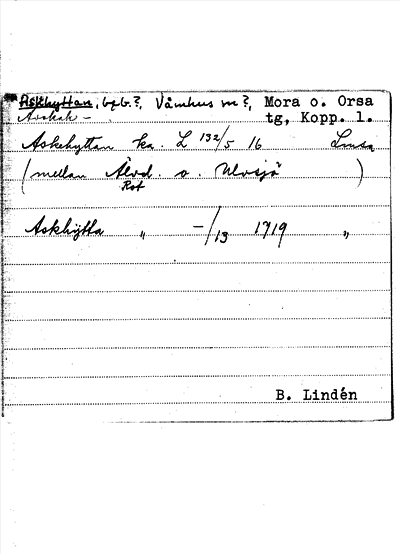 Askhyttan, bgb.?, Våmhus sn?, Mora o. Orsa
Avskok - tg, Kopp. l.
Askehyttan ka. L 132/5 16 Lmsa
(mellan Älvd. o. Ulvsjö)
Rot
Askhytta " -/13 1719 "
B. Lindén